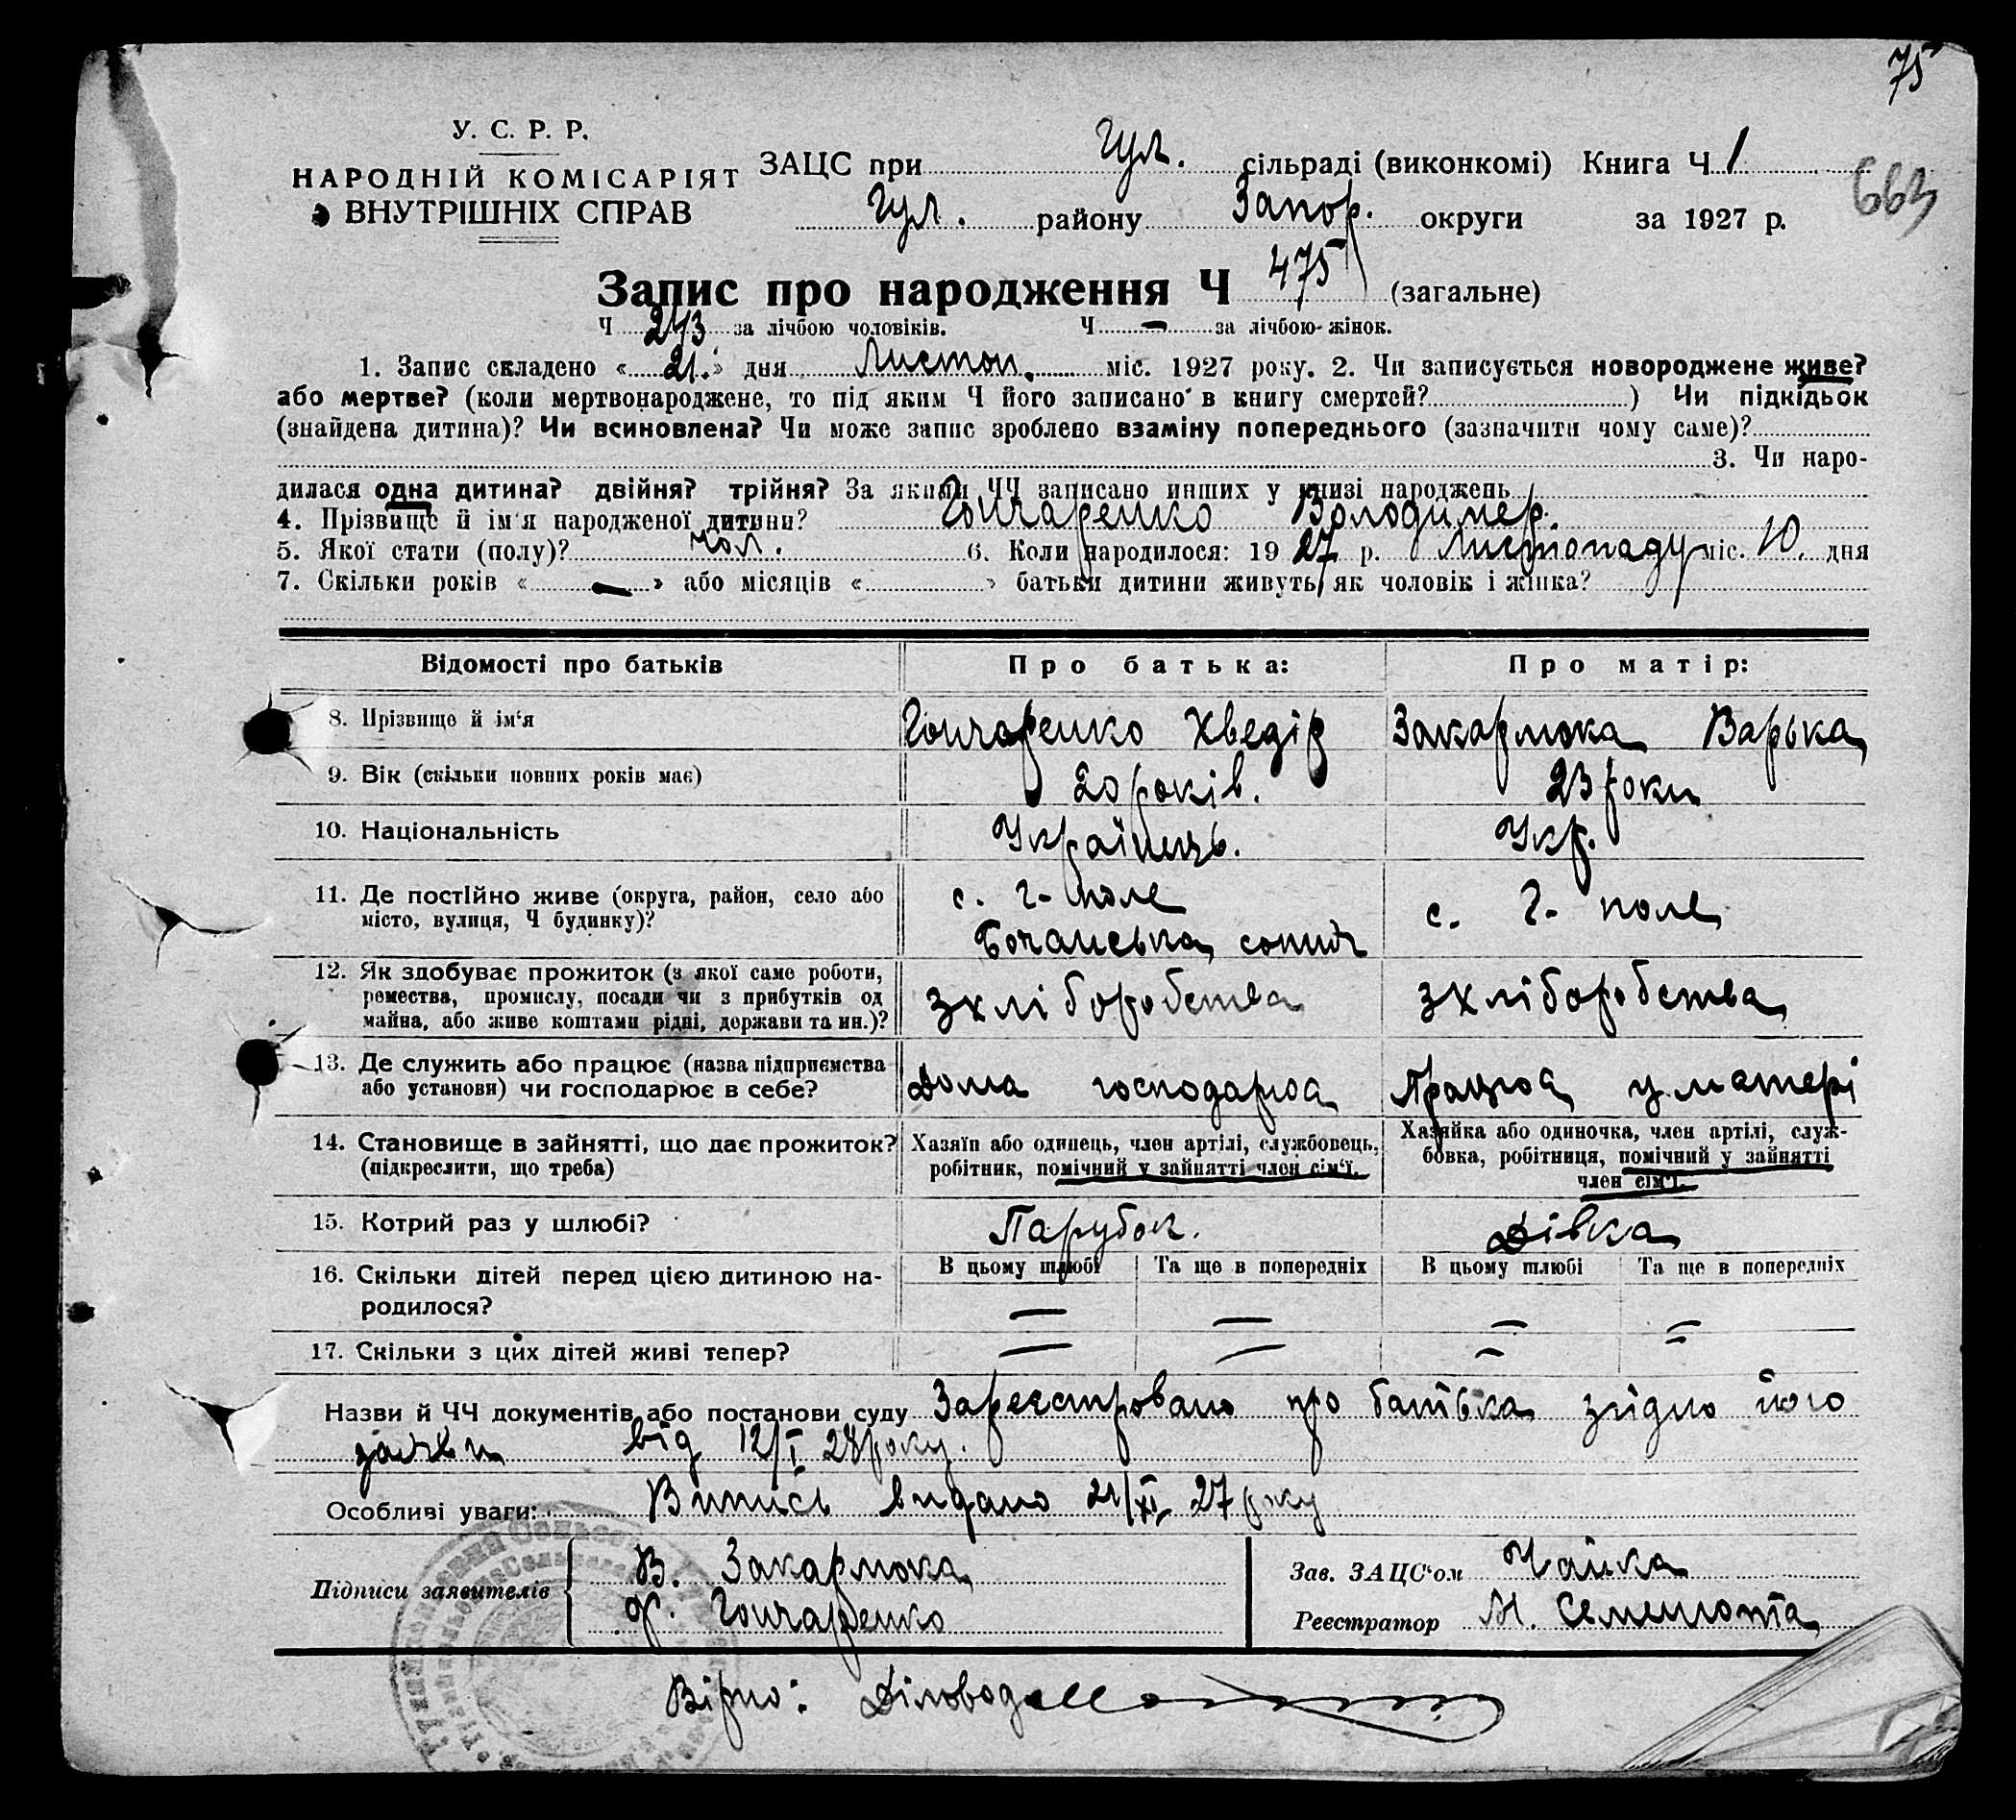 75
У. С. Р. Р.
НАРОДНІЙ КОМІСАРІЯТ
ВНУТРІШНІХ СПРАВ
ЗАЦС при Гул. сільраді (виконкомі) Книга Ч 1
663
Гул. району Запор. округи за 1927 р.
Запис про народження Ч 475 (загальне)
Ч 243 за лічбою чоловіків. Ч — за лічбою жінок.
1. Запис складено « 21. » дня Листоп. міс. 1927 року. 2. Чи записується новороджене живе?
або мертве? (коли мертвонароджене, то під яким Ч його записано в книгу смертей? ) Чи підкідьок
(знайдена дитина)? Чи всиновлена? Чи може запис зроблено взаміну попереднього (зазначити чому саме)?
3. Чи наро-
дилася одна дитина? двійня? трійня? За якими ЧЧ записано инших у книзі народжень
4. Прізвище й ім'я народженої дитини? Гончаренко Володимер.
5. Якої стати (полу)? чол. 6. Коли народилося: 1927 р. Листопаду міс. 10. дня
7. Скільки років « — » або місяців « » батьки дитини живуть як чоловік і жінка?
Відомості про батьків Про батька: Про матір:
8. Прізвище й ім'я Гончаренко Хведір Закармока Варька
9. Вік (скільки повних років має) 20 років. 23 роки
10. Національність Українець. Укр.
11. Де постійно живе (округа, район, село або
місто, вулиця, Ч будинку)?
с. Г-поле
Бочанська сотня
с. Г- поле
12. Як здобуває прожиток (з якої саме роботи,
ремества, промислу, посади чи з прибутків од
майна, або живе коштами рідні, держави та ин.)?
з хліборобства
з хліборобства
13. Де служить або працює (назва підприємства
або установи) чи господарює в себе?
Дома господарює
Працює у матері
14. Становище в зайнятті, що дає прожиток?
(підкреслити, що треба)
Хазяїн або одинець, член артілі, службовець,
робітник, помічний у зайнятті член сім'ї.
Хазяйка або одиночка, член артілі, служ-
бовка, робітниця, помічний у зайнятті
член сім'ї.
15. Котрий раз у шлюбі? Парубок. Дівка
16. Скільки дітей перед цією дитиною на-
родилося?
В цьому шлюбі Та ще в попередніх В цьому шлюбі Та ще в попередніх
— — — —
17. Скільки з цих дітей живі тепер? — — — —
Назви й ЧЧ документів або постанови суду Зареєстровано про батька згідно його
заяви від 12/I 28 року.
Особливі уваги: Випись видано 21/XI 27 року
Підписи заявителів
В. Закармока
Ф. Гончаренко
Зав. ЗАЦС'ом Чайка
Реєстратор М. Семенюта
Вірно: Діловод